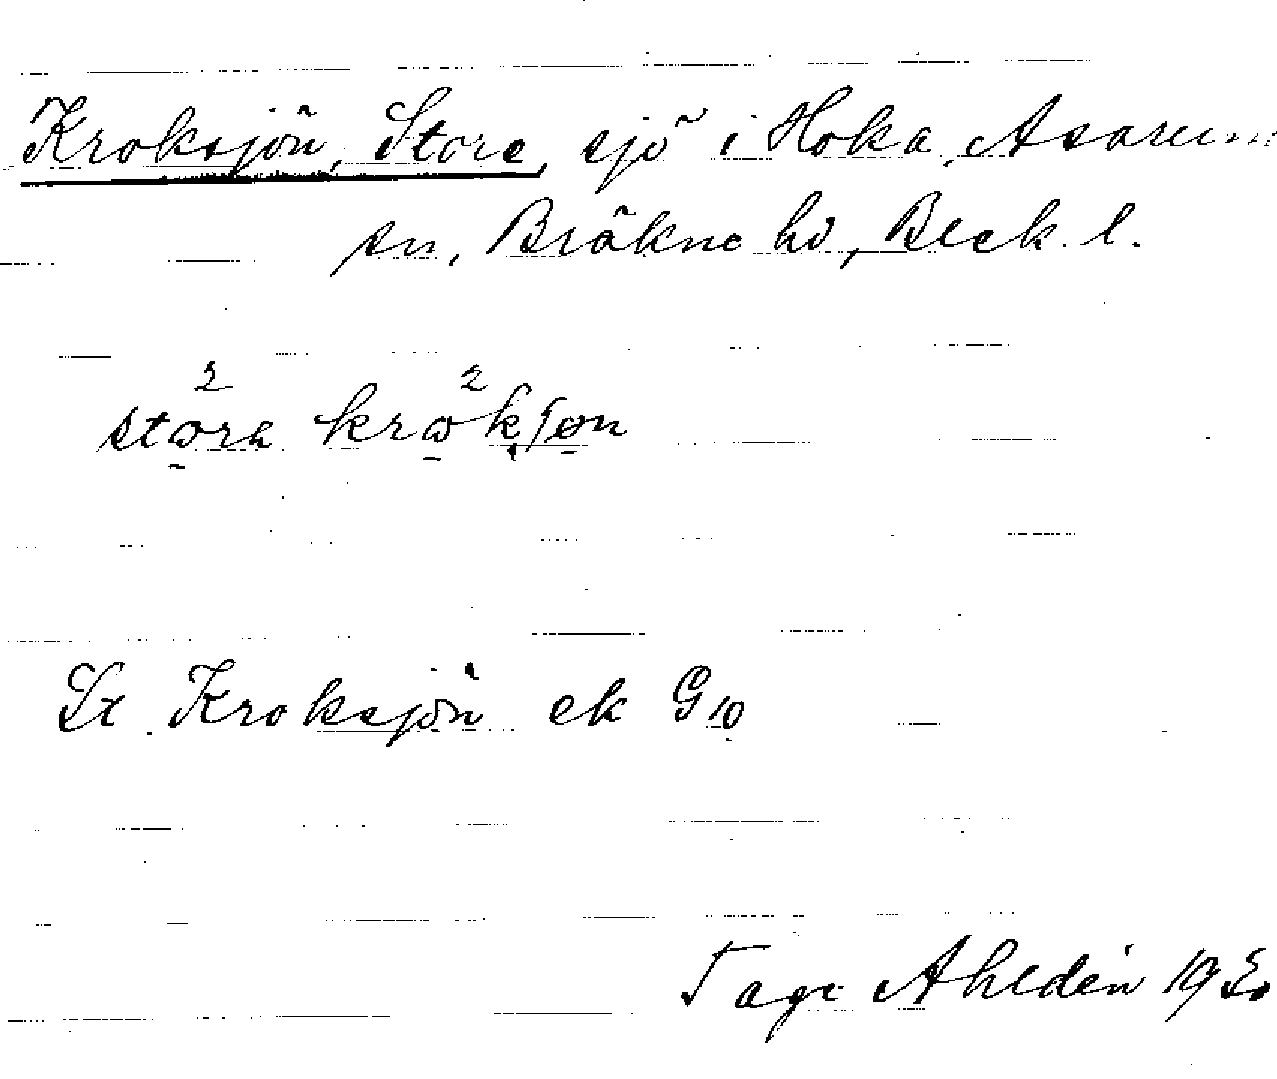 Kroksjön, Store, sjö i Hoka, Asarum
sn, Bräkne hd, Blek. l.
St. Kroksjön ek G10
Tage Ahldén